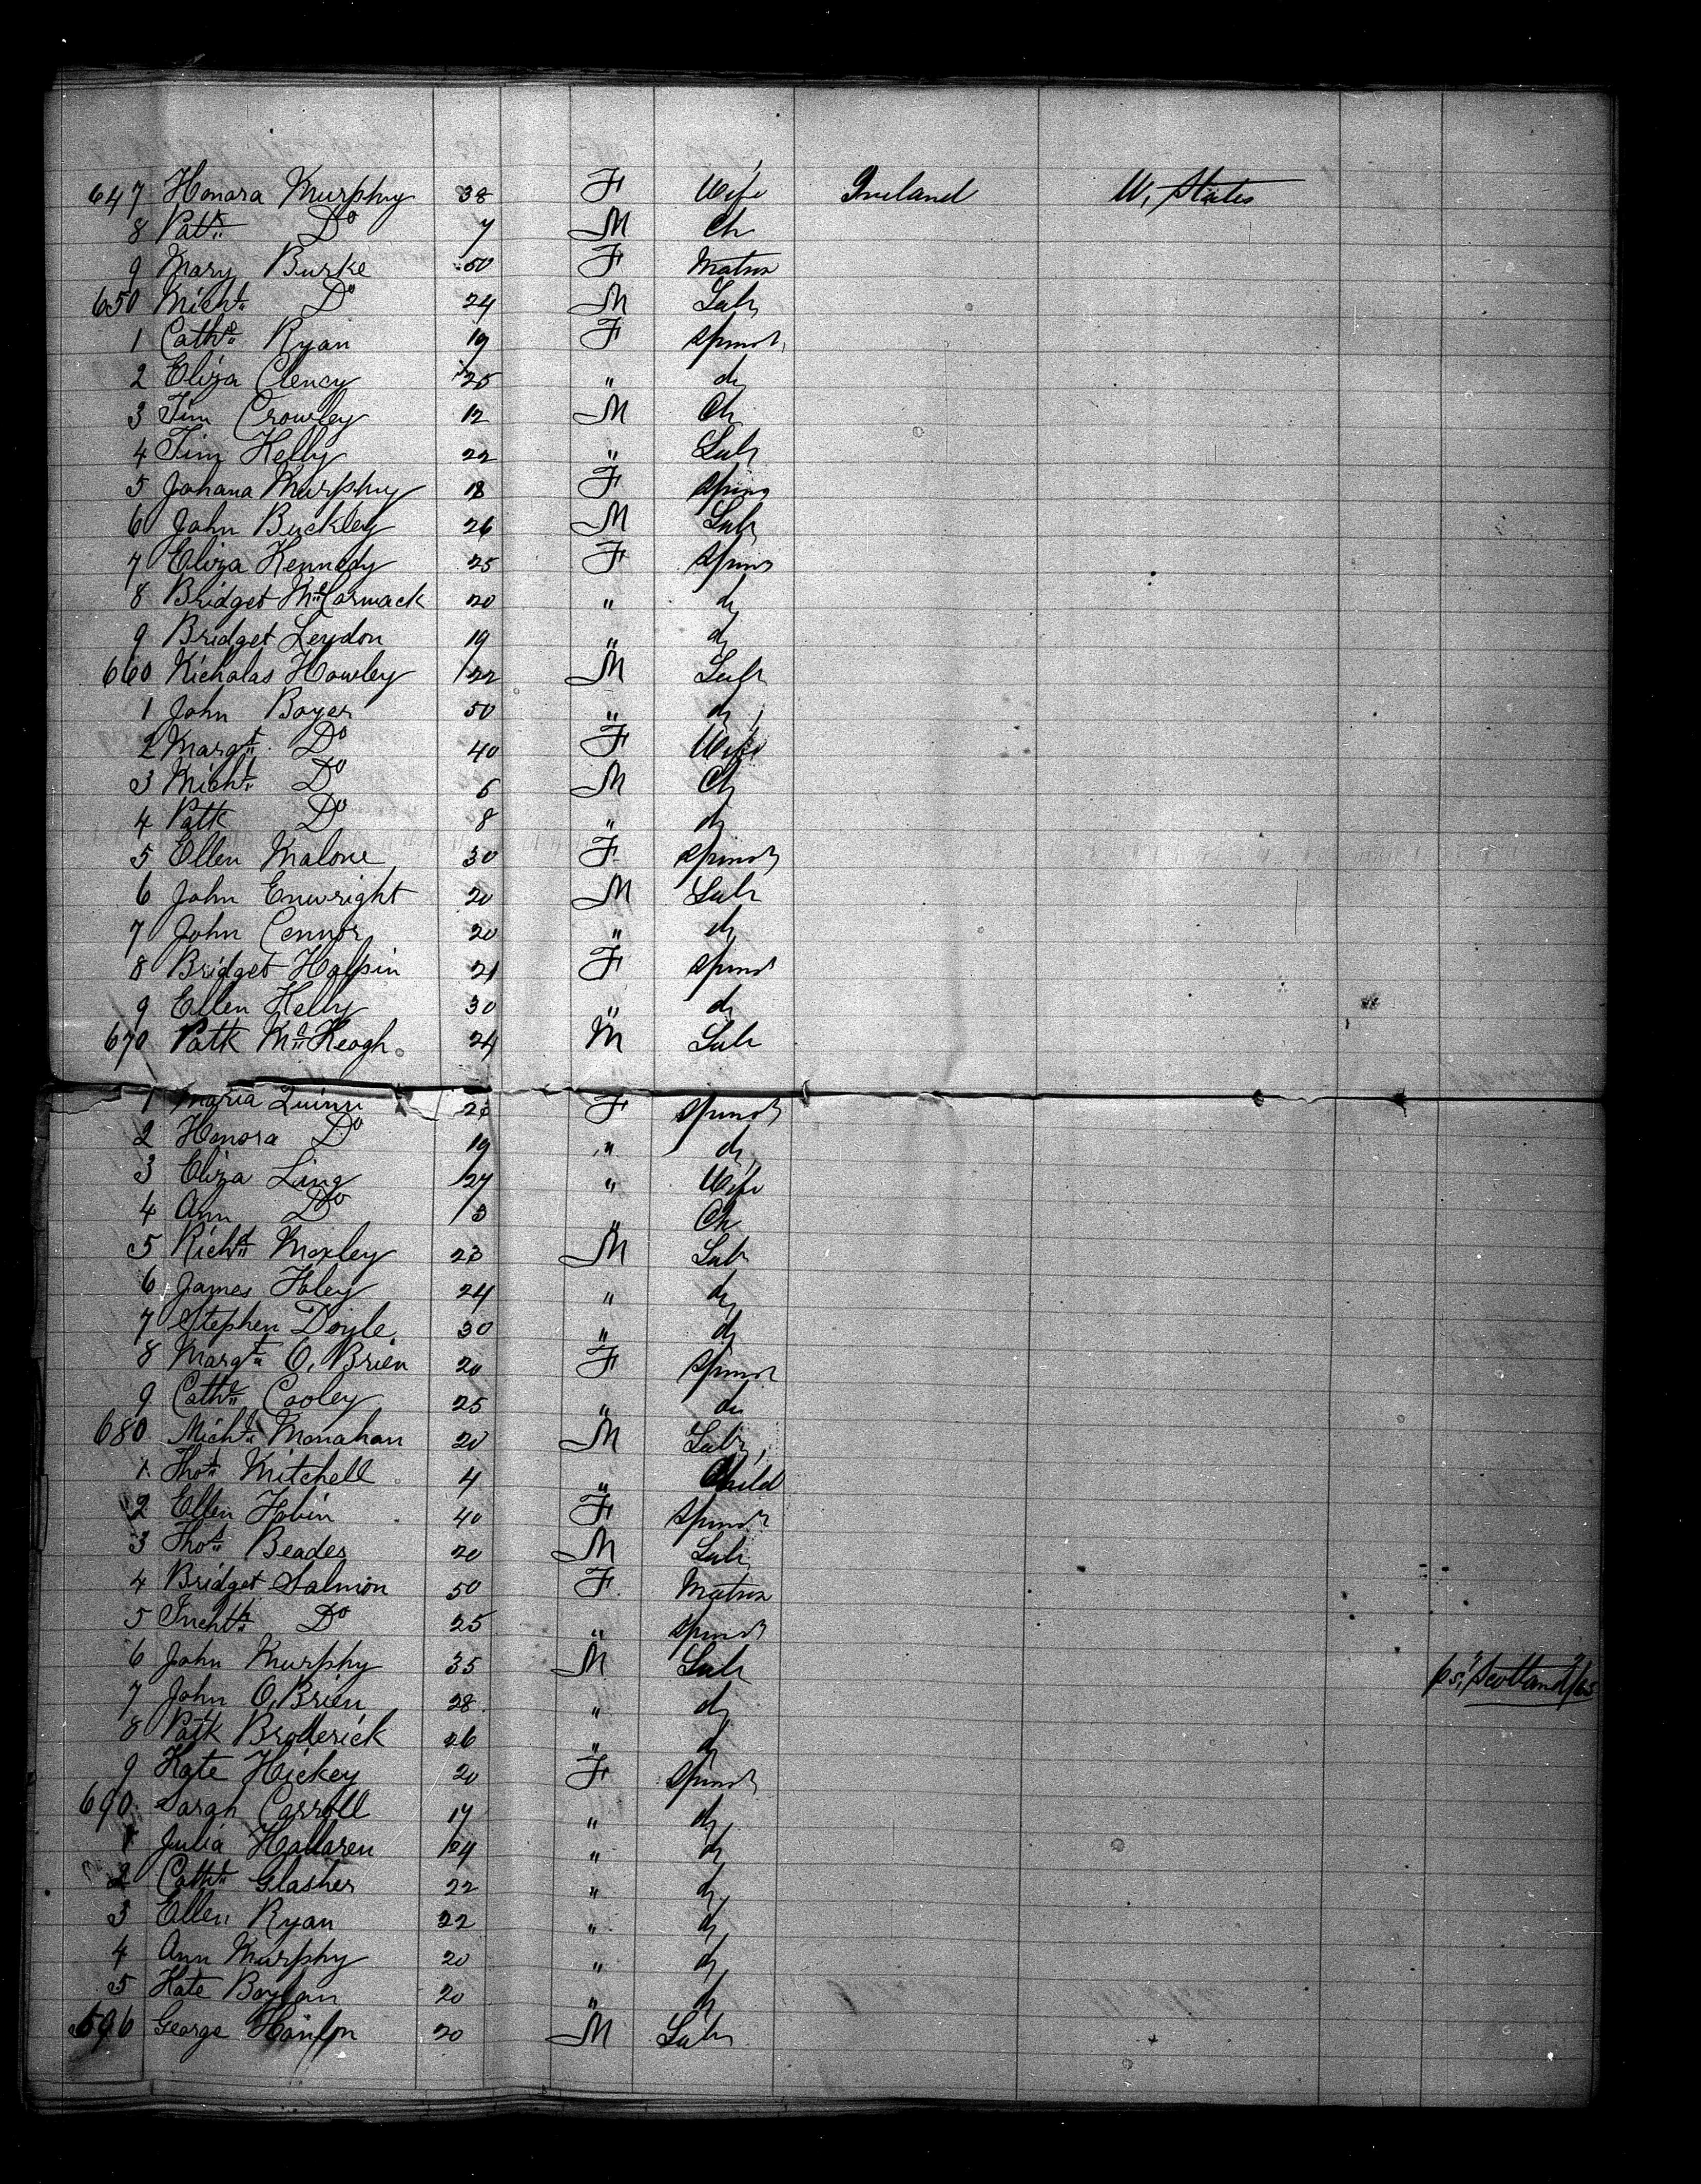 647 Honora Murphy 38 F Wife Ireland U, States
8 Patk Do 7 M Ch
9 Mary Burke 50 F Matron
650 Michl Do 24 M Labr
1 Cathe Ryan 19 F Spinstr
2 Eliza Clency 25 " do
3 Tim Crowley 12 M Ch
4 Tim Kelly 22 " Labr
5 Johana Murphy 18 F Spins
6 John Buckley 26 M Labr
7 Eliza Kennedy 25 F Spins
8 Bridget McCormack 20 " do
9 Bridget Leydon 19 " do
660 Nicholas Howley 22 M Labr
1 John Boyer 50 " do
2 Margt Do 40 F Wife
3 Michl Do 6 M Ch
4 Patk Do 8 " do
5 Ellen Malone 30 F Spinstr
6 John Enwright 20 M Labr
7 John Connor 20 " do
8 Bridget Halpin 21 F Spinstr
9 Ellen Kelly 30 " do
670 Patk McKeogh 24 M Labr
1 Maria Quinn F Spinstr
2 Honora Do 19 " do
3 Eliza Ling 27 " Wife
4 Ann Do 3 " Ch
5 Richd Moxley 23 M Labr
6 James Foley 24 " do
7 Stephen Doyle 30 " do
8 Margt O, Brien 20 F Spinstr
9 Cathe Cooley 25 " do
680 Michl Monahan 20 M Labr
1 Thos Mitchell 4 " Child
2 Ellen Tobin 40 F Spinstr
3 Thos Beades 20 M Labr
4 Bridget Salmon 50 F Matron
5 Do 25 " Spinstr
6 John Murphy 35 M Labr
7 John O, Brien 28 " do ps, "Scotland"/65
8 Patk Broderick 26 " do
9 Kate Hickey 20 F Spinstr
690 Sarah Carroll 17 " do
1 Julia Hallaren 24 " do
2 Cathe Glasher 22 " do
3 Ellen Ryan 22 " do
4 Ann Murphy 20 " do
5 Kate Boylan 20 " do
696 George Hanlon 20 M Labr